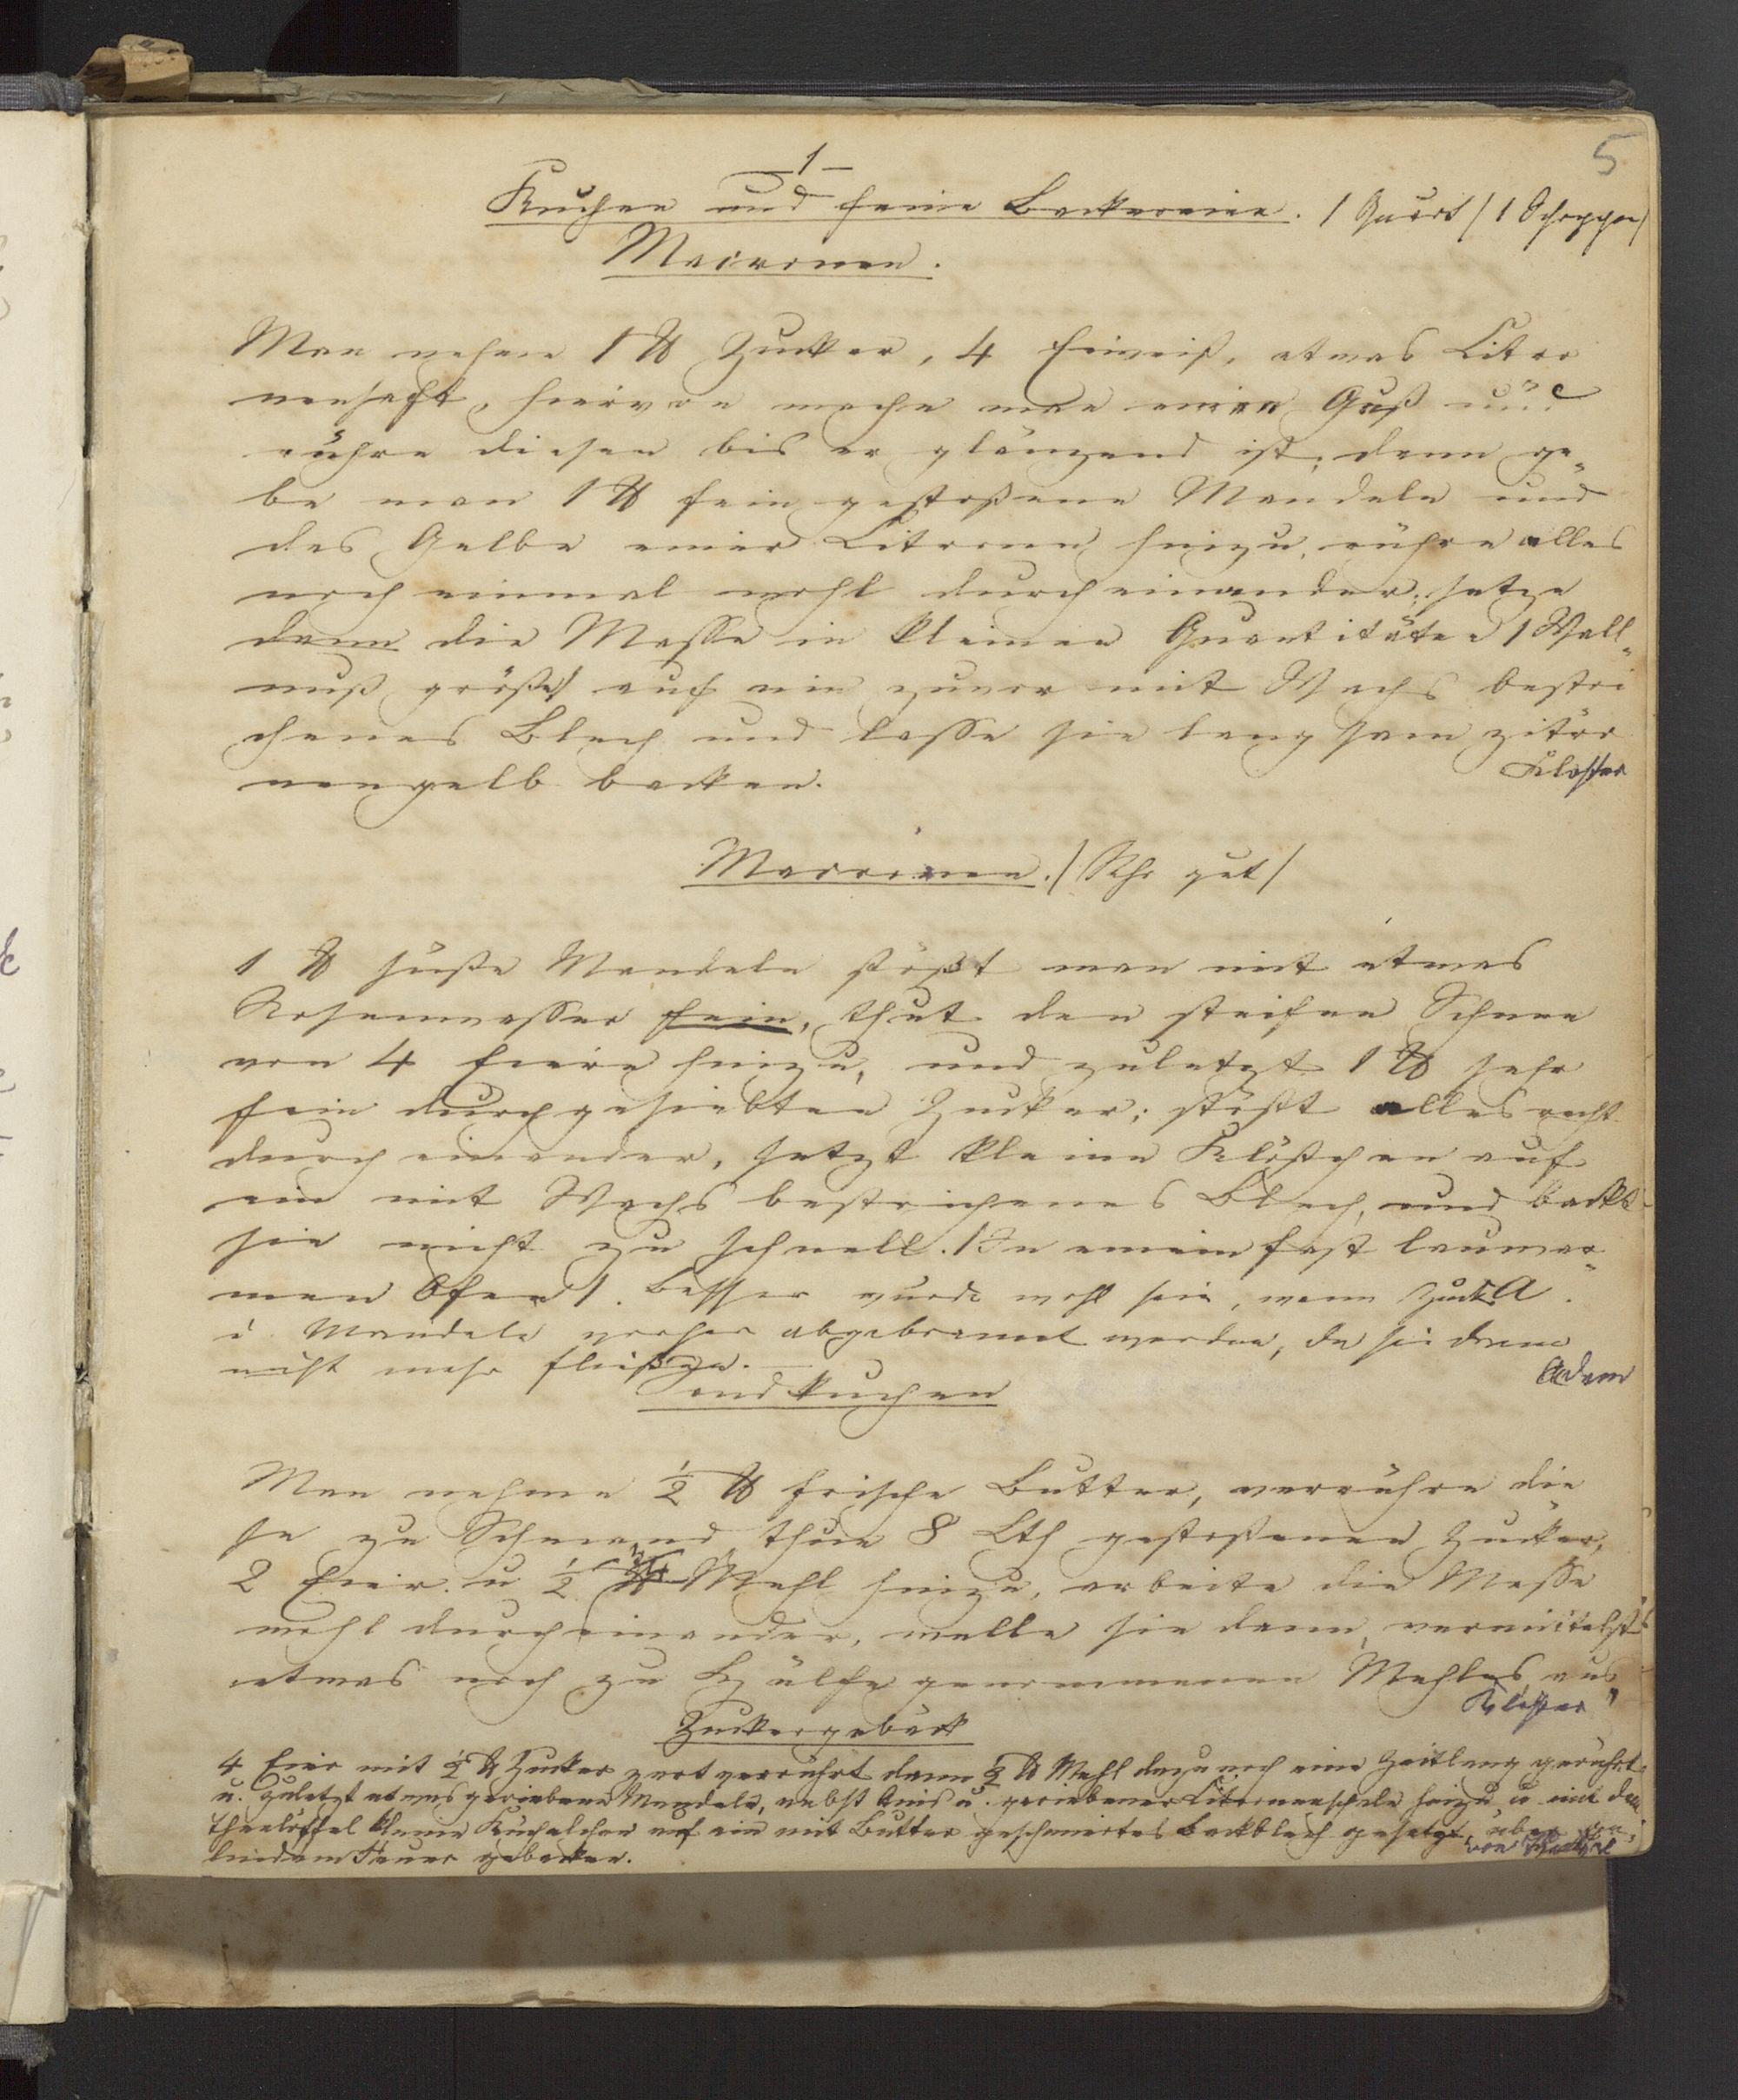 5
1
Kuchen und feine Backereien. 1 Quart / 1 Schoppen /
Macronen.
Man nehme 1 ℔ Zucker, 4 Eiweiß, etwas Citro
nensaft, hiervon mache man einen Guß und
rühre diesen bis er glänzend ist, dann ge„
be man 1 ℔ fein gestoßene Mandeln und
das Gelbe einer Citrone hinzu, rühre alles
noch einmal wohl durcheinander, setze
dann die Masse in kleinen Quantitäten / Wall„
nuß größe / auf ein zuvor mit Wachs bestri
chenes Blech und lasse sie langsam zitro
nengelb backen.
Kloster
Macronen. / Sehr gut /
1 ℔ süße Mandeln stößt man mit etwas
Rosenwasser fein, thut den steifen Schnee
von 4 Eiern hinzu, und zuletzt 1 ℔ sehr
fein durchgesiebten Zucker; stößt alles recht
durch einander, setzt kleine Klößchen auf
ein mit Wachs bestrichenes Blech, und backt
sie nicht zu schnell. / In einem fast lauwar„
men Ofen /. Besser wurde wohl sein, wenn Zuck
u Mandeln vorher abgebrannt werden, da sie dann
nicht mehr fließen.
Adam
Sandkuchen
Man nehme ½ ℔ frische Butter, verrühre die
se zu Schmand thue 8 Lth gestoßenen Zucker,
2 Eier u ½ ℔ Mehl hinzu, arbeite die Masse
wohl durcheinander, welle sie dann, vermittelst
etwas noch zu Hülfe genommenen Mehles, aus
Kloster
Zuckergebäck
4 Eier mit ½ ℔ Zucker zart verrührt dann ½ ℔ Mehl dazu noch eine Zeitlang gerührt
u. zuletzt etwas geriebene Mandeln, nebst Anis u. geriebener Citronenschale hinzu u mit dem
Theelöffel kleine Küchelchen auf ein mit Butter geschmiertes Backblech gesetzt, über
lindem Feuer gebacken.
von